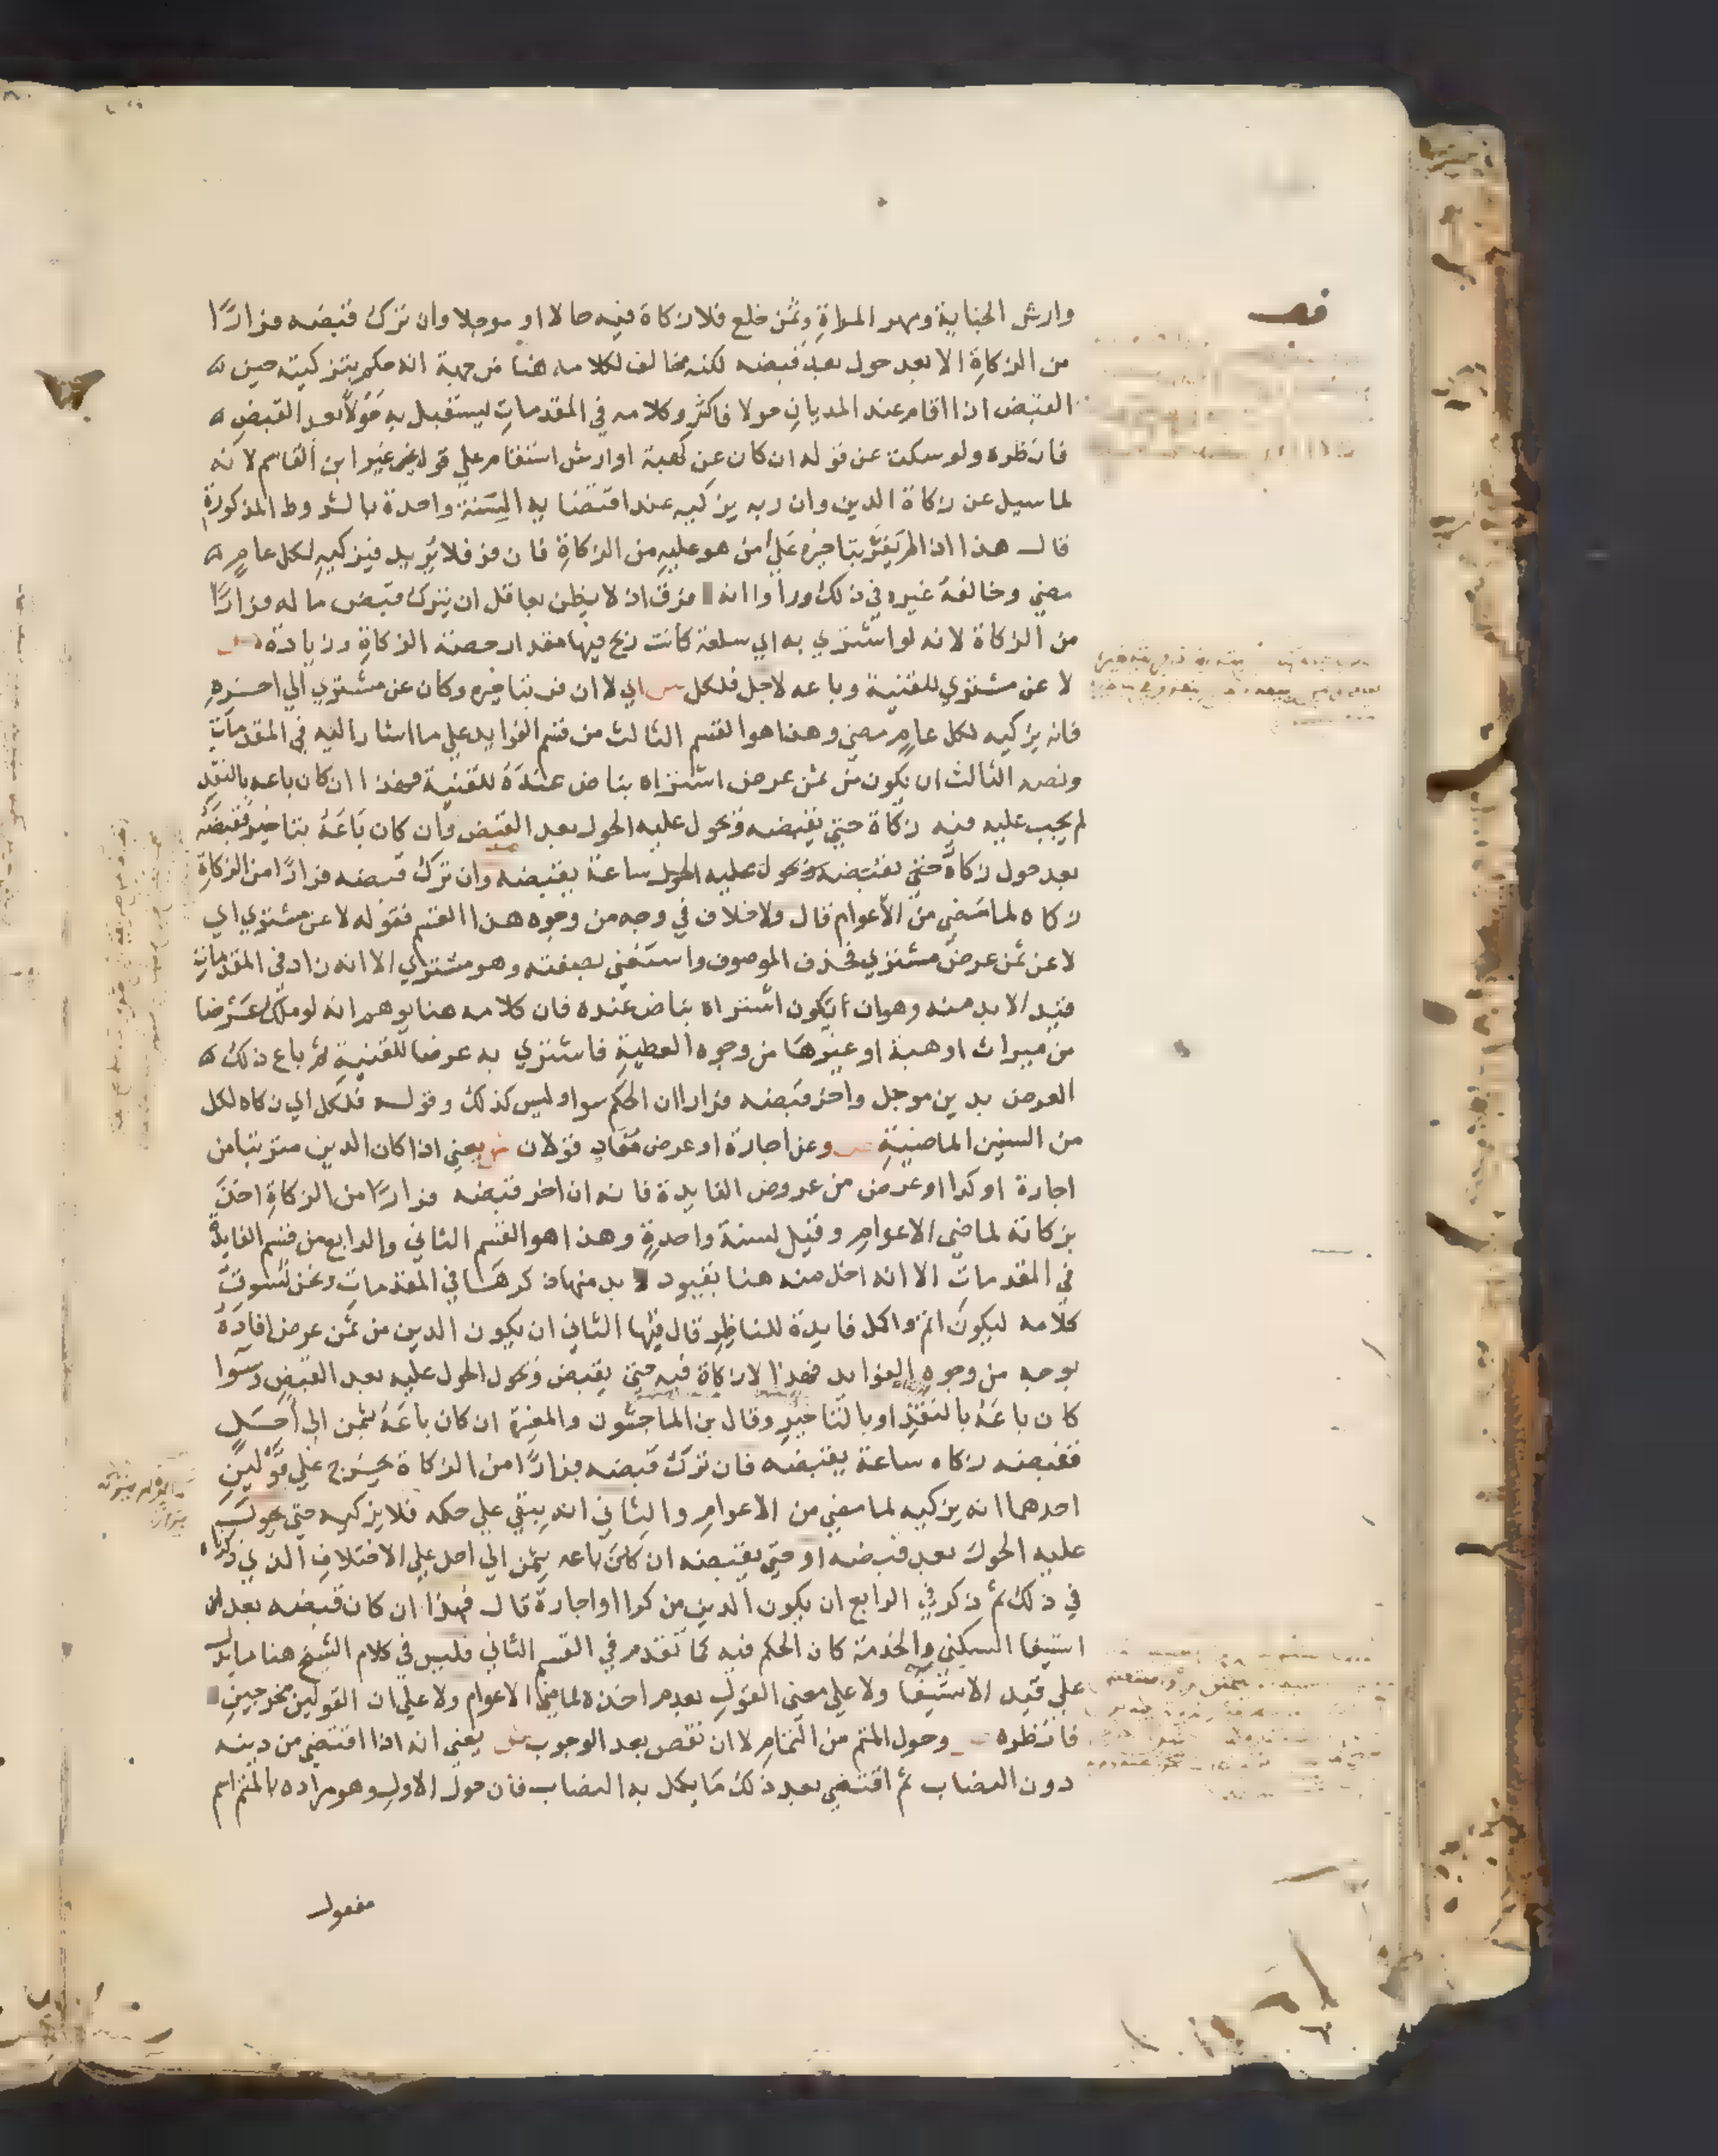 وارش الجناية ومهر المراة وثمن خلع فلا زكاة فيه حالا او موجلا وان ترك قبضه فرارًا
من الزكاة الا بعد حول بعد قبضه لكنه مخالف لكلامه هنا من جهة انه حكم بتزكيته حين
القبض اذا اقام عند المديان حولا فاكثر وكلامه في المقدمات ليستقبل به حولا بعد القبض
فانظره ولو سكت عن قوله ان كان عن كهبة او ارش استقام علي قول غير ابن القاسم لانه
لما سيل عن زكاة الدين وان ربه يزكيه عند اقتضايه لسنة واحدة بالشروط المذكورة
قال هذا اذا لم يفر بتاخيره علي من هو عليه من الزكاة فان فر فلا يريد فيزكيه لكل عام
مضي وخالفه غيره في ذلك وراوا انه فرق اذ لا يظن بعاقل ان يترك قبض ماله فرارًا
من الزكاة لانه لو اشتري به اي سلعة كانت ربح فيها مقدار حصة الزكاة وزيادة
لا عن مشتري للقنية وباعه لاجل فلكل اي لا ان فر بتاخيره وكان عن مشتري الي اخره
فانه يزكيه لكل عام مضي وهذا هو القسم الثالث من قسم الفوايد علي ما اشار اليه في المقدمات
ونصه الثالث ان يكون من ثمن عرض اشتراه بناض عنده للقنية فهذا ان كان باعه بالنقد
لم يجب عليه فيه زكاة حتي يقبضه وتحول عليه الحول بعد القبض وان كان باعه بتاخير فقبضه
بعد حول زكاه حتي يقبضه وتحول عليه الحول ساعة يقبضه وان ترك قبضه فرارًا من الزكاة
زكاه لما مضي من الاعوام قال ولا خلاف في وجه من وجوه هذا القسم فقوله لا عن مشتري اي
لا عن ثمن عرض مشتري فحذف الموصوف واستغني بصفته وهو مشتري الا انه زاد في المقدمات
قيد الا بد منه وهو ان يكون اشتراه بناض عنده فان كلامه هنا يوهم انه لو ملك عرضا
من ميراث او هبة او غيرها من وجوه العطية فاشتري به عرضا للقنية ثم باع ذلك
العرض بدين موجل واخر قبضه فرارا ان الحكم سوا وليس كذلك وقوله فلكل اي زكاه لكل
من السنين الماضية وعن اجارة او عرض مفاد قولان يعني اذا كان الدين مترتبا من
اجارة او كرا او عرض من عروض الفايدة فانه ان اخر قبضه فرارًا من الزكاة اخذ
بزكاته لماضي الاعوام وقيل لسنة واحدة وهذا هو القسم الثاني والرابع من قسم الفايدة
في المقدمات الا انه اخل منه هنا بقيود لا بد منها ذكرها في المقدمات ونحن نسوق
كلامه ليكون اتم واكمل فايدة للناظر قال فيها الثاني ان يكون الدين من ثمن عرض افاده
بوجه من وجوه الفوايد فهذا لا زكاة فيه حتي يقبض وتحول الحول عليه بعد القبض وسوا
كان باعه بالنقد او بالتاخير وقال بن الماجشون والمغيرة ان كان باعه بثمن الي اجل
فقبضه زكاه ساعة يقبضه فان ترك قبضه فرارًا من الزكاة يخرج علي قولين
احدهما انه يزكيه لما مضي من الاعوام والثاني انه يبقي علي حكمه فلا يزكيه حتي يحول
عليه الحول بعد قبضه او حتي يقبضه ان كان باعه بثمن الي اجل علي الاختلاف الذي ذكرناه
في ذلك ثم ذكر في الرابع ان يكون الدين من كرا او اجارة قال فهذا ان كان قبضه بعد
استيفا السكني والخدمة كان الحكم فيه كما تقدم في القسم الثاني فليس في كلام الشيخ هنا ما يدل
علي قيد الاستيفا ولا علي معني القول بعدم اخذه لماضي الاعوام ولا علي ان القولين مخرجين
فانظره وحول المتم من التمام لا ان نقص بعد الوجوب يعني انه اذا اقتضي من دينه
دون النصاب ثم اقتضي بعد ذلك ما يكمل به النصاب فان حول الاول وهو مراده بالمتم اسم
مفعول